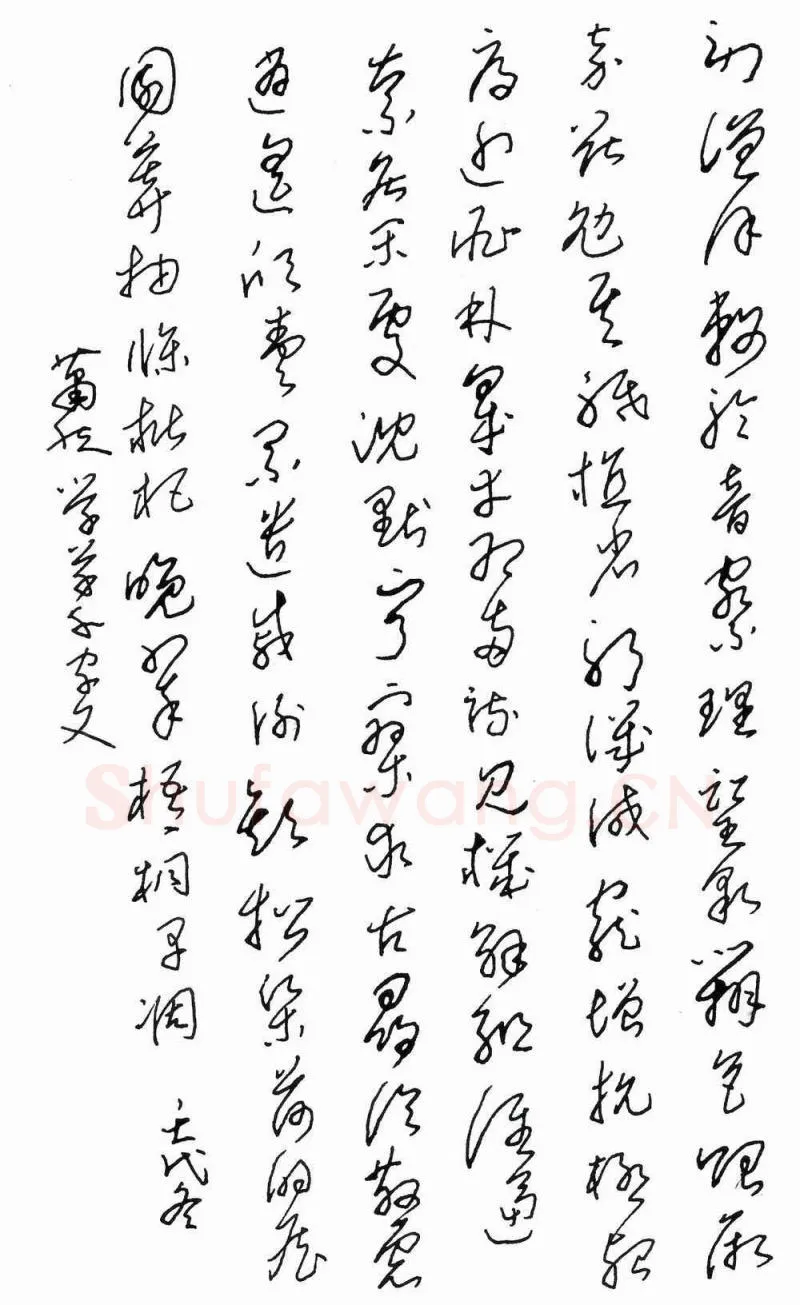 勞謙謹敕聆音察理鑒貌辨色貽厥
嘉猷勉其祗植省躬譏誡寵增抗極殆
辱近恥林皋幸即兩疏見機解組誰逼
索居閒處沈默寂寥求古尋論散慮
逍遙欣奏累遣慼謝歡招渠荷的歷
園莽抽條枇杷晚翠梧桐早凋 壬戌冬
蕭 学草千字文
Shufawang.CN